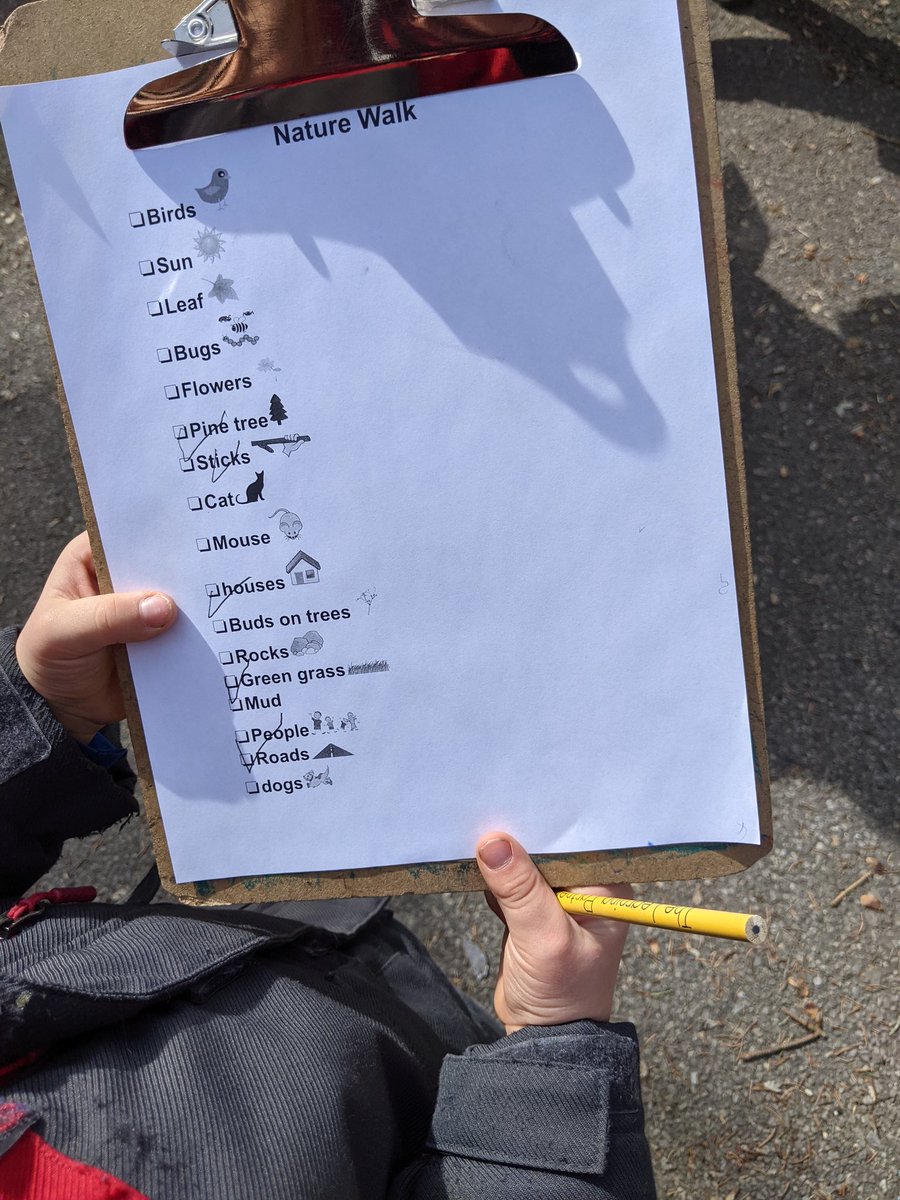 Nature Walk
❑Birds
❑Sun
❑Leaf
❑Bugs
❑Flowers
❑Pine tree
❑Sticks
❑Cat
❑Mouse
❑houses
❑Buds on trees
❑Rocks
❑Green grass
❑Mud
❑People
❑Roads
❑dogs
The Learning